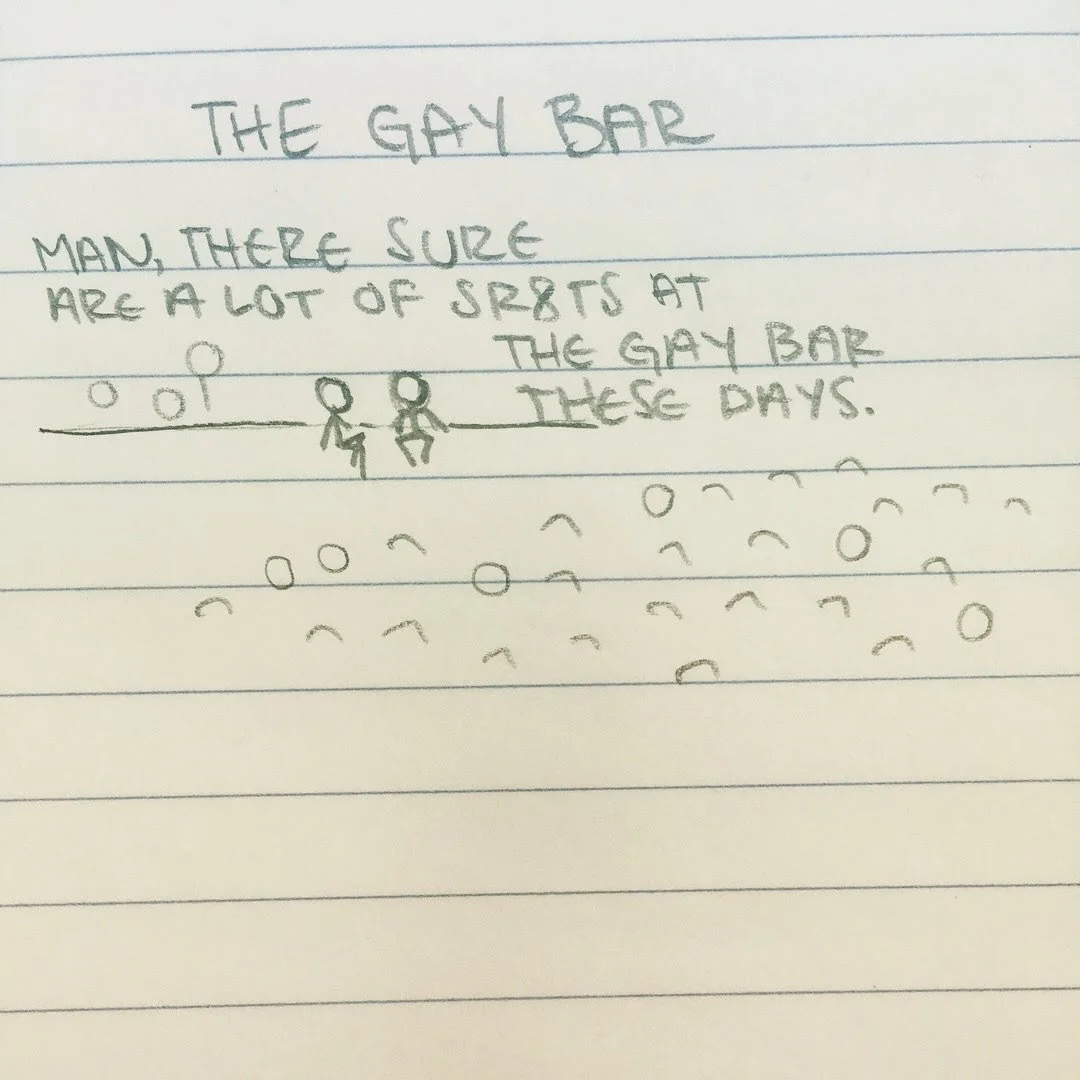 THE GAY BAR
MAN, THERE SURE
ARE A LOT OF SR8TS AT
THE GAY BAR
THESE DAYS.